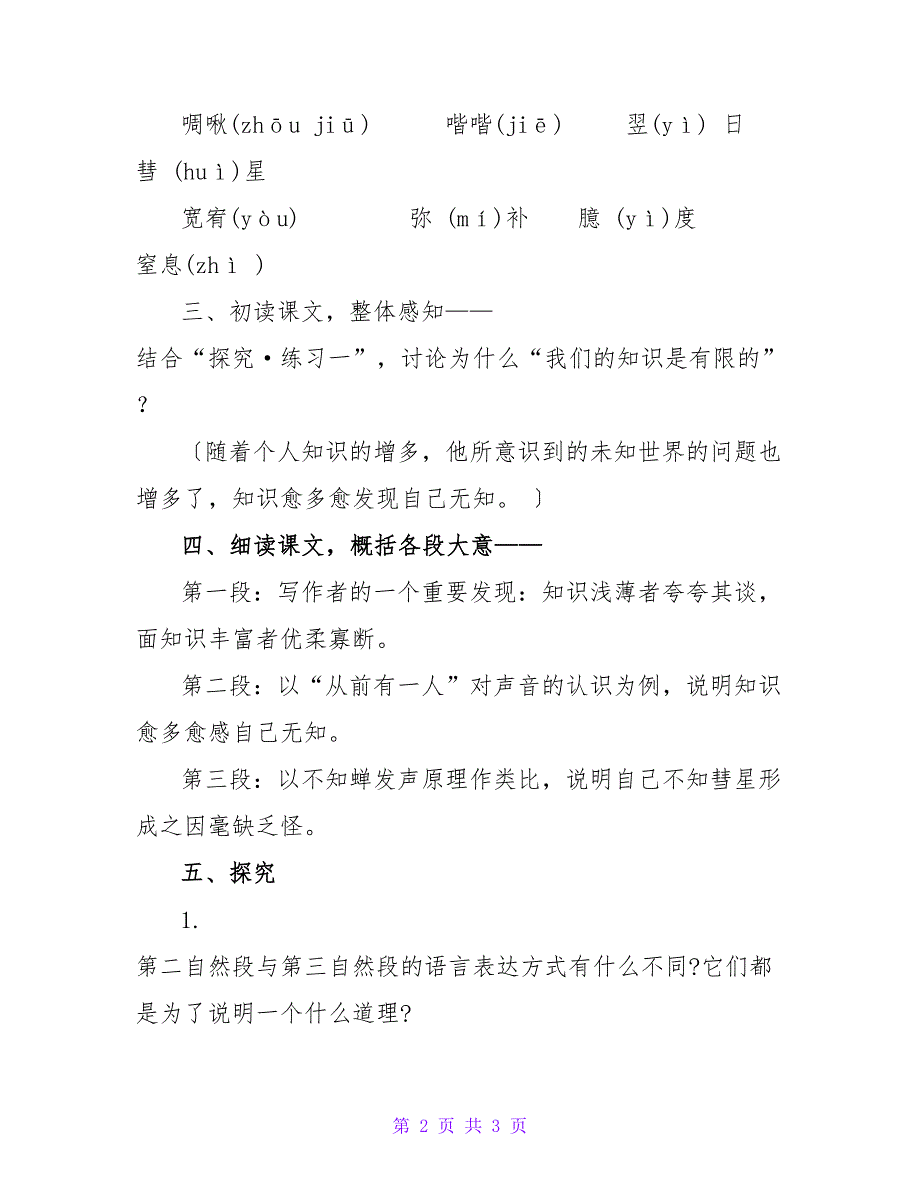 啁啾(zhōu jiū) 喈喈(jiē) 翌(yì) 日
彗 (huì)星
宽宥(yòu) 弥 (mí)补 臆 (yì)度
窒息(zhì )
三、初读课文，整体感知——
结合“探究·练习一”，讨论为什么“我们的知识是有限的”
?
〔随着个人知识的增多，他所意识到的未知世界的问题也
增多了，知识愈多愈发现自己无知。 〕
四、细读课文，概括各段大意——
第一段：写作者的一个重要发现：知识浅薄者夸夸其谈，
面知识丰富者优柔寡断。
第二段：以“从前有一人”对声音的认识为例，说明知识
愈多愈感自己无知。
第三段：以不知蝉发声原理作类比，说明自己不知彗星形
成之因毫缺乏怪。
五、探究
1.
第二自然段与第三自然段的语言表达方式有什么不同?它们都
是为了说明一个什么道理?
第 2 页 共 3 页